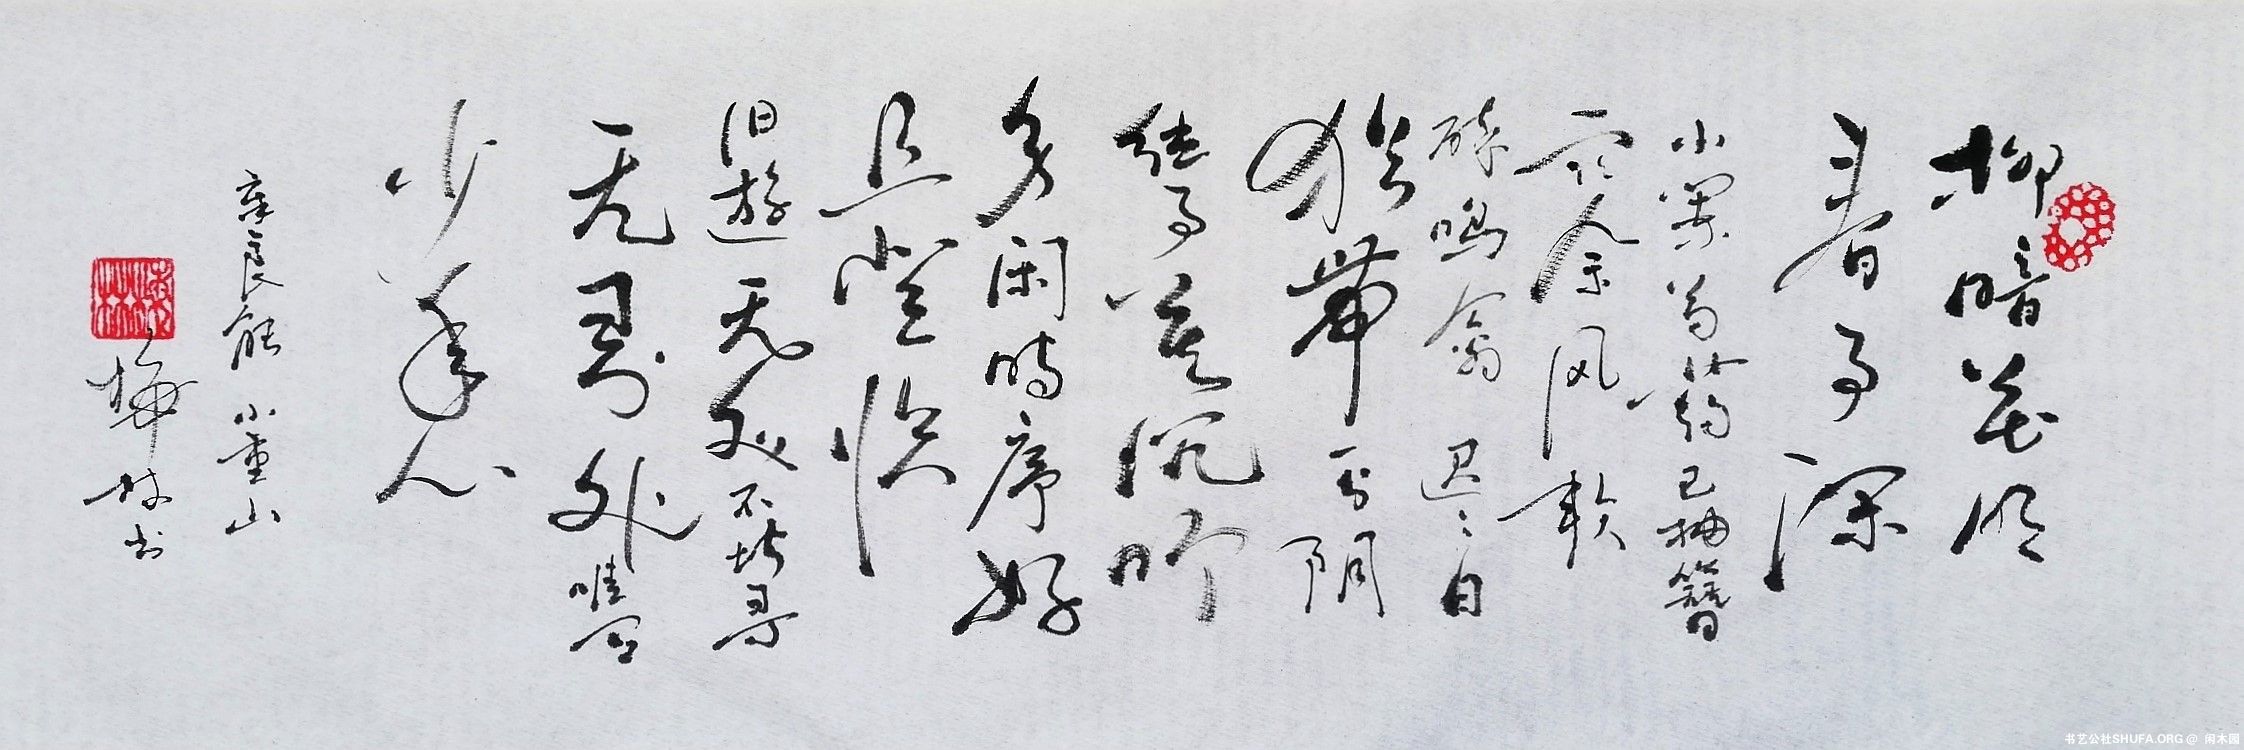 柳暗花明
春事深
小阑芍药已抽簪
雨余风软
碎鸣禽 迟迟日
犹带一分阴
往事莫沉吟
身闲时序好
且登临
旧遊无处不堪寻
无寻处唯有
少年心
章良能 小重山
书
书艺公社SHUFA.ORG @ 闲木园